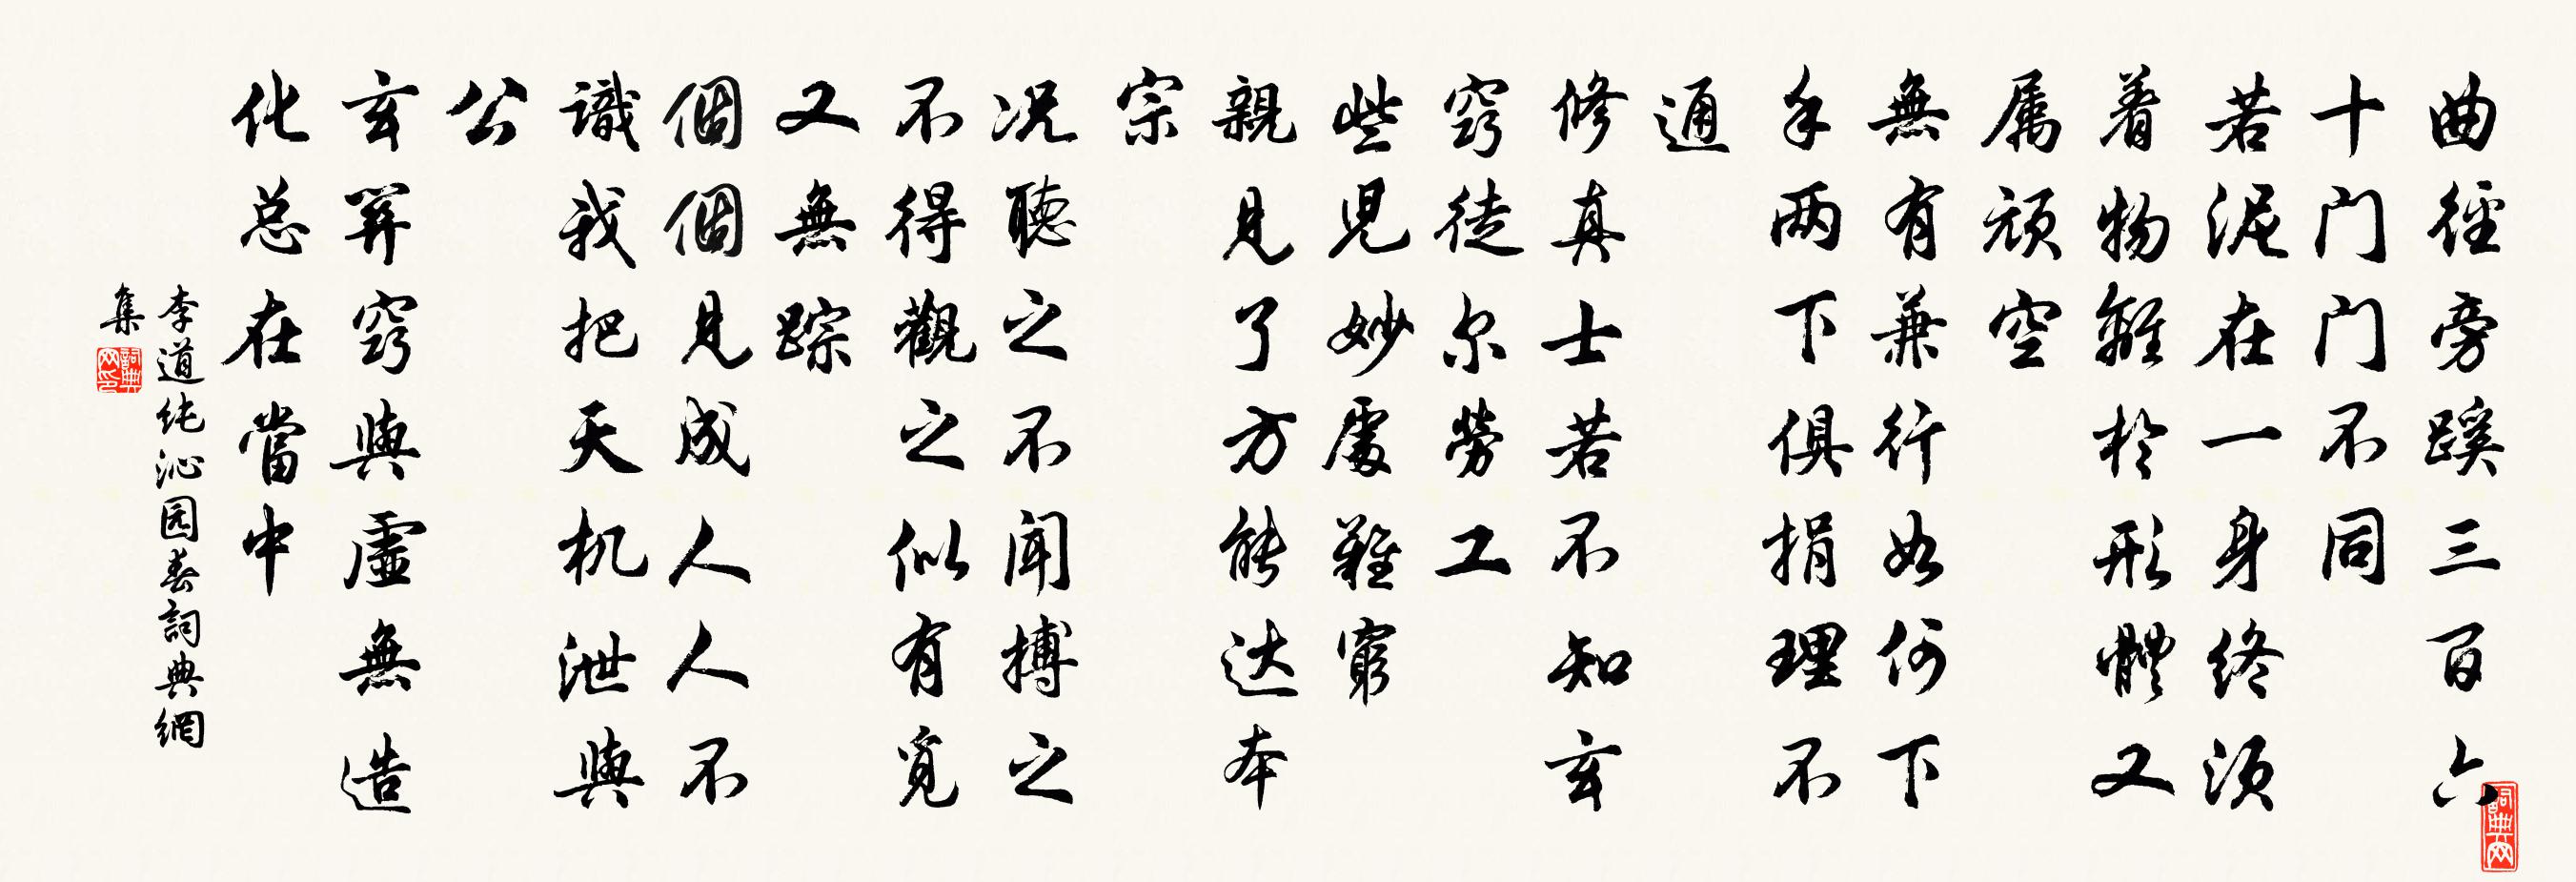 曲徑旁蹊三百六
十门门不同
若泥在一身终须
着物離於形體又
属頑空
無有兼行如何下
手两下俱捐理不
通
修真士若不知玄
窍徒尔勞工
些兒妙處難窮
親見了方能达本
宗
况聽之不闻搏之
不得觀之似有覓
又無踪
個個見成人人不
識我把天机泄與
公
玄關窍與虛無造
化总在當中
李道纯沁园春詞典網
集
詞典网印
詞典网